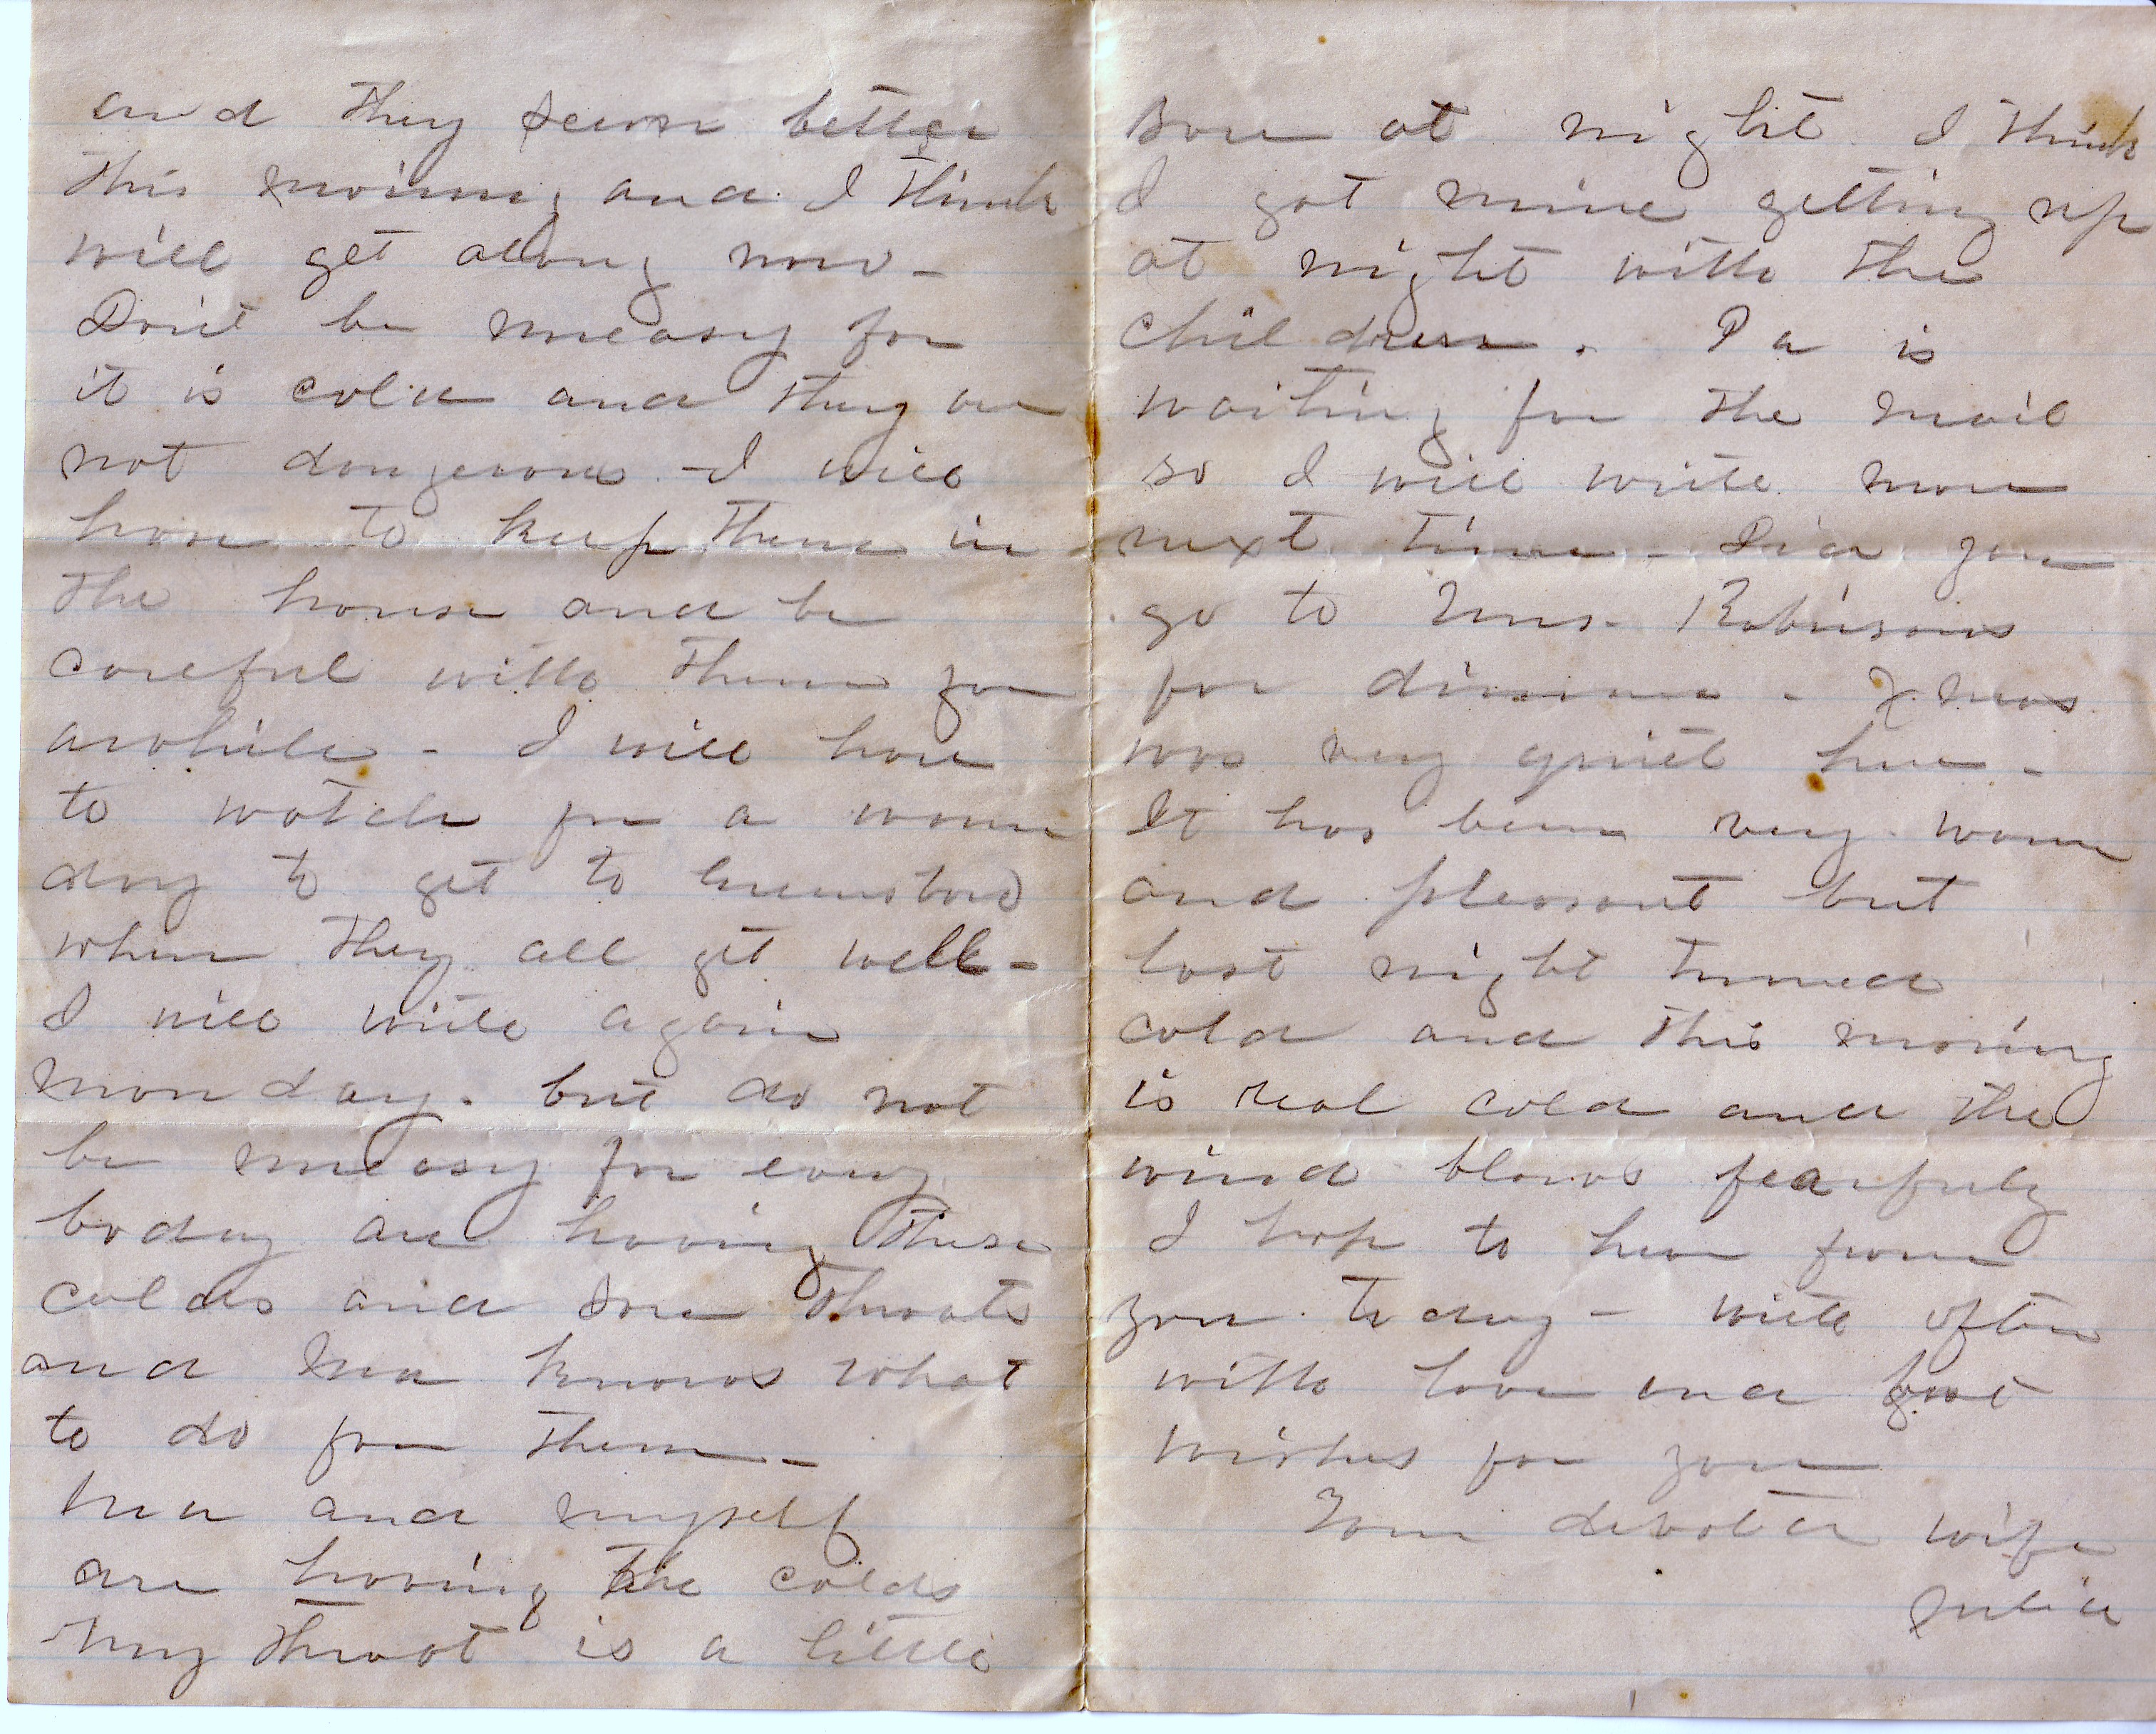 and they seem better
this morning and I think
will get along now -
Don't be uneasy for
it is cold and they are
not dangerous - I will
have to keep them in
the house and be
careful with them for
awhile - I will have
to watch for a warm
day to get to
when they all get well -
I will write again
monday. but do not
be uneasy for every
body are having these
colds and sore throats
and ma knows what
to do for them -
Ma and myself
are having the colds
My throat is a little
sore at night I think
I got mine getting up
at night with the
children. Pa is
waiting for the mail
so I will write more
next time - Did you
go to Mrs. Robinsons
for dinner - Xmas
was very quiet here -
It has been very warm
and pleasant but
last night turned
cold and this morning
is real cold and the
wind blows fearfuly
I hope to hear from
you today - write often
with love and best
wishes for you
Your devoted wife
Julia